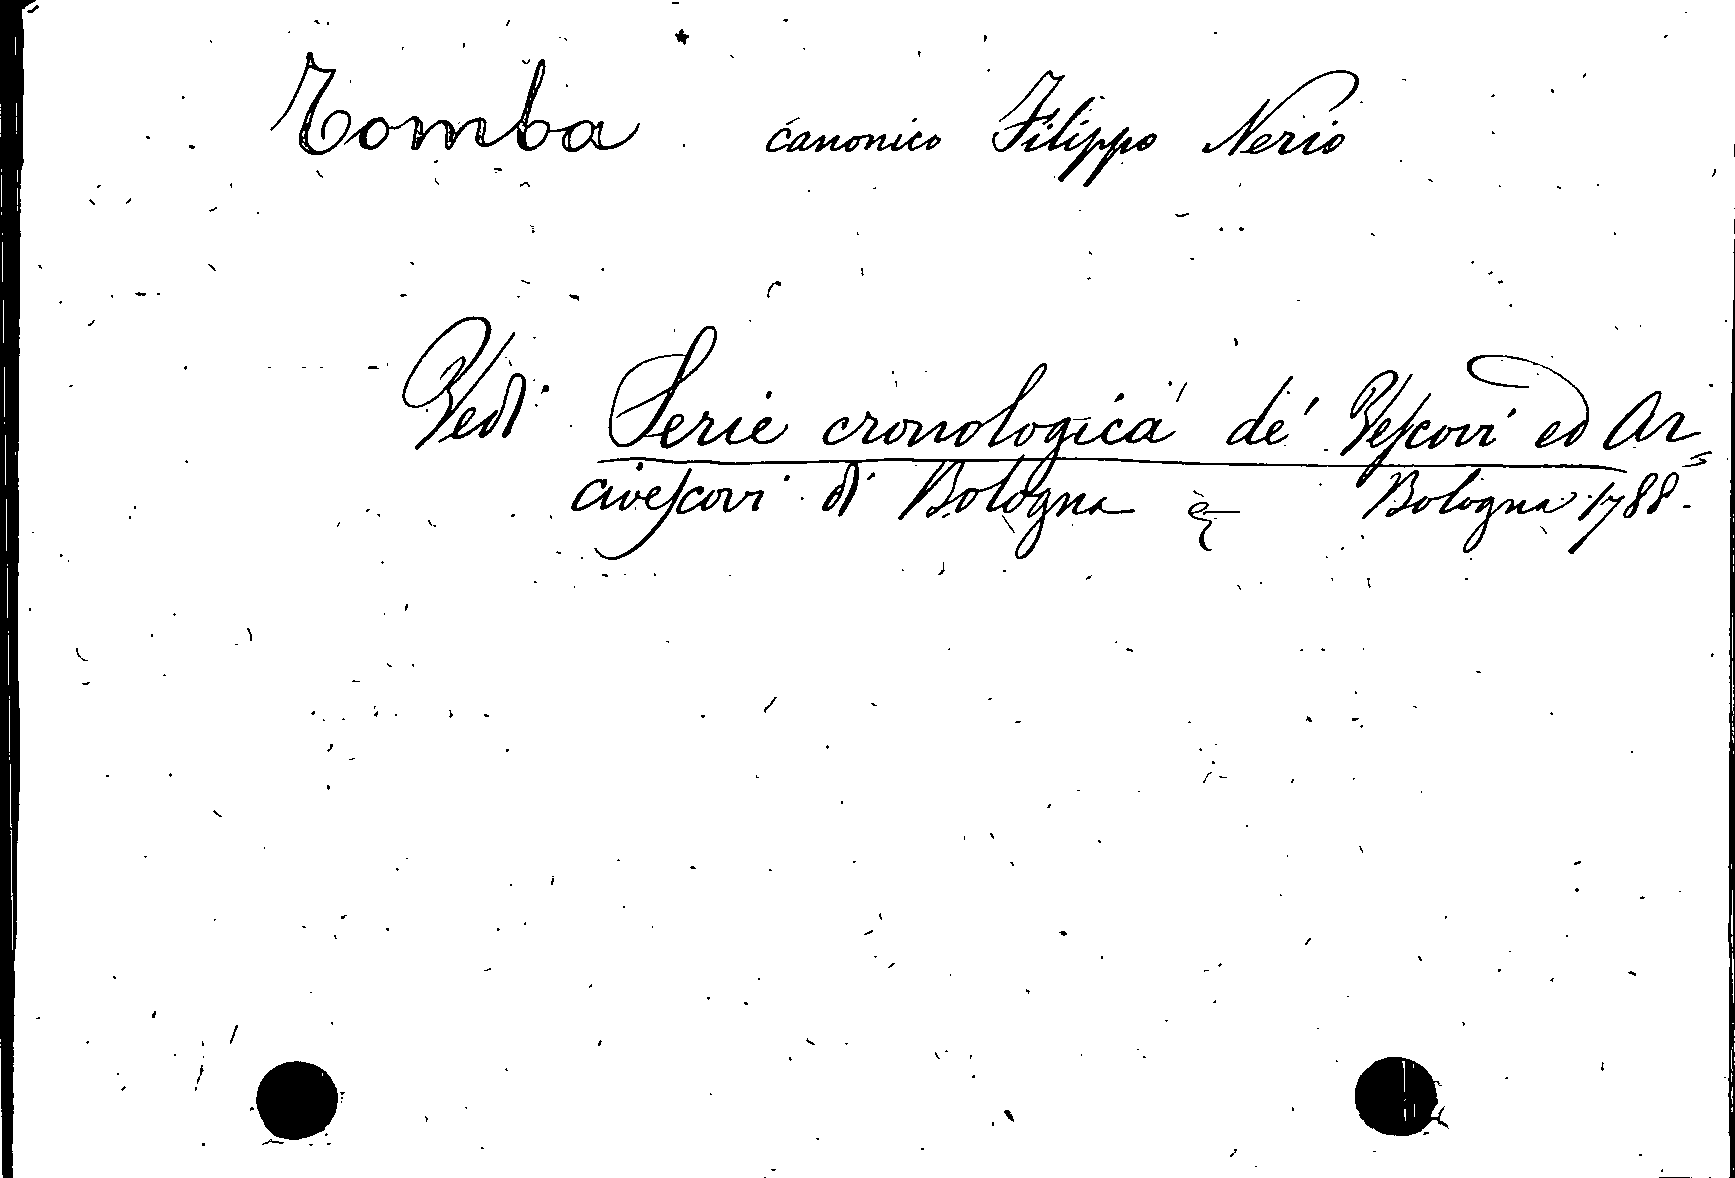 Tomba canonico Filippo Nerio
Vedi Serie cronologica de' Vescovi ed Ar=
civescovi di Bologna & Bologna 1788.